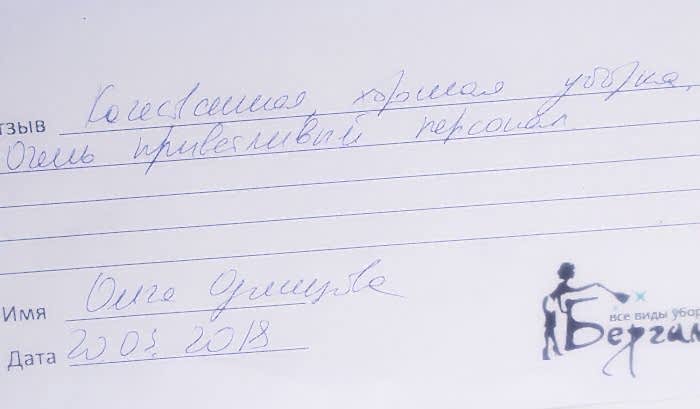 тзыв Качественная, хорошая уборка,
Очень приветливый персонал.
Имя Ольга
Дата 20 03. 2018
все виды убор
Бергам